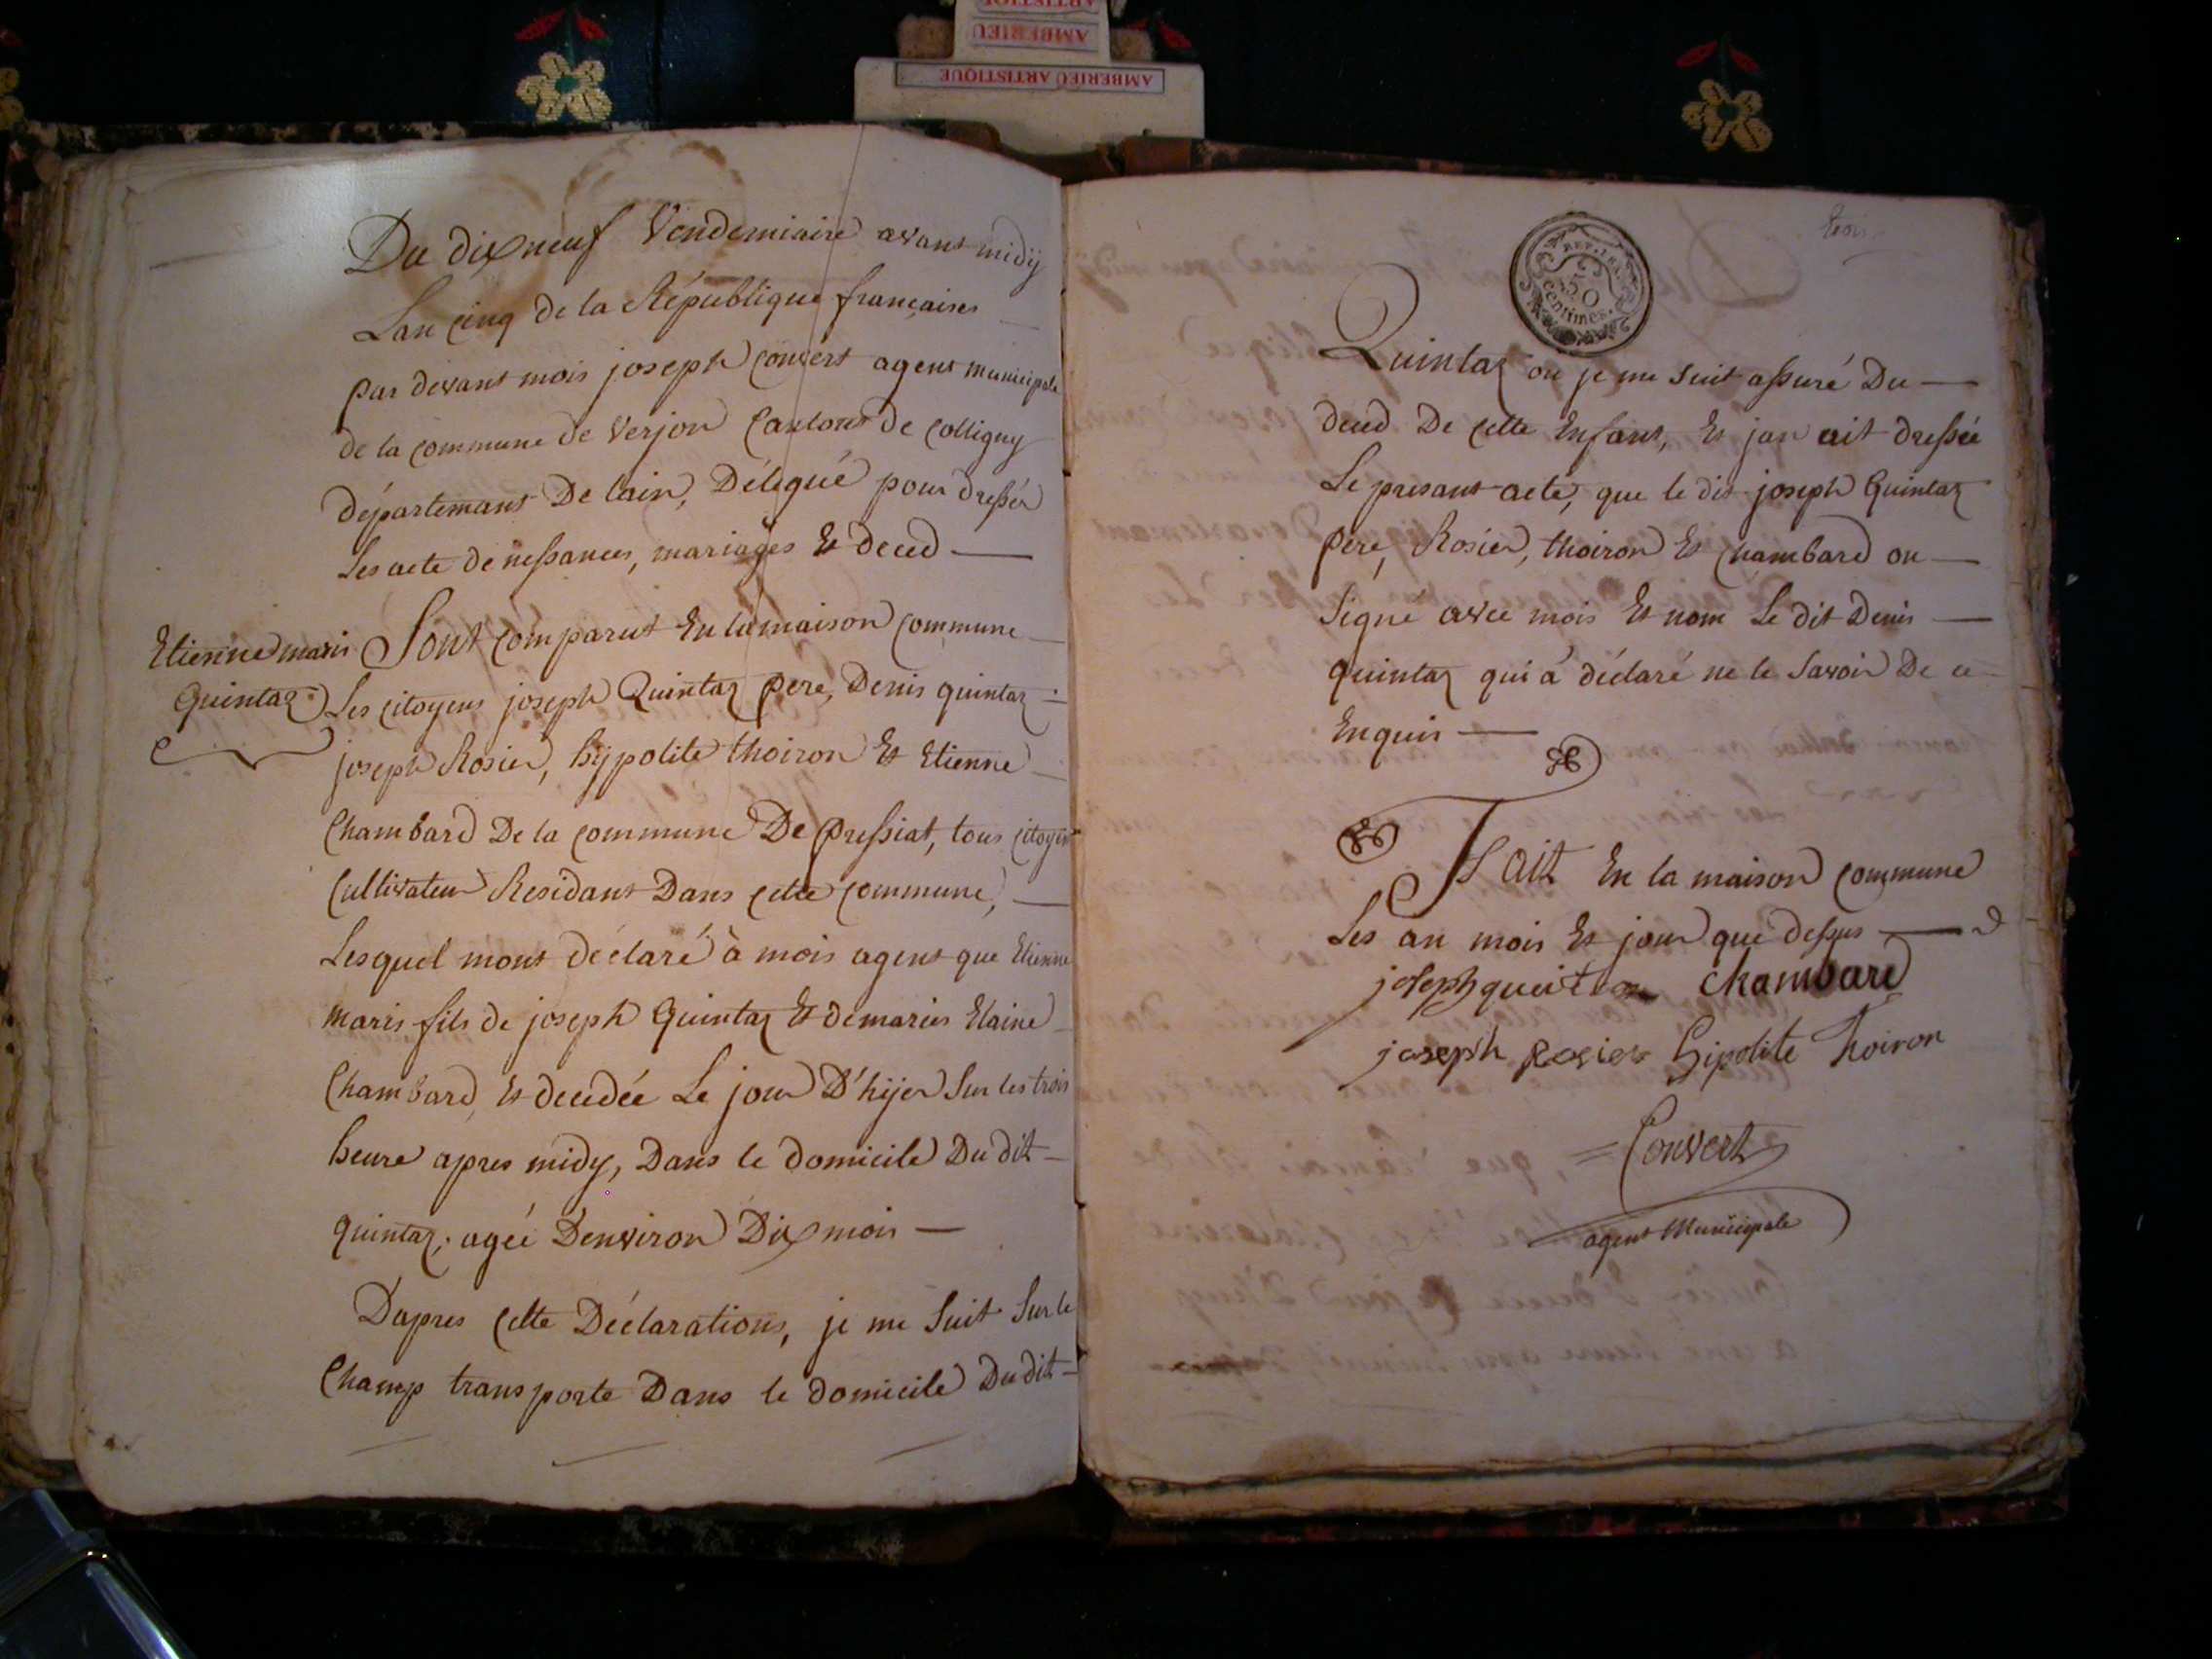 ARTISTIQ
AMBERIEU
AMBERIEU ARTISTIQUE
Du dixneuf Vendemiaire avant midÿ
Lan cinq de la République françaises
par devant mois joseph Convert agent municipale
de la commune de Verjon Cantons de Colligny
départemant De lain, Délégué pour dresser
Les acte de nessances, mariages Et deced
Etienne maris
Quintaz
Sont comparut En la maison commune
Les citoyens joseph Quintaz pere, Denis quintaz
joseph Rosier, hÿpolite thoiron Et Etienne
Chambard De la commune De pressiat, tous citoyen
Cultivateur Residant Dans cette commune,
Lesquel mont déclaré à mois agent que Etienne
maris fils de joseph Quintaz Et de maries Elaine
Chambard, Et decedée Le jour D'hijer Sur les trois
heure apres midy, Dans le domicile Du dit
quintaz; ageé Denviron Dix mois
Dapres cette Déclarations, je me Suit Sur le
Champ transporte Dans le domicile Du dit
trois
REP. FRA.
50
centimes.
Quintaz ou je me Suit assuré Du
deced De cette Enfant, Et jan ait dressée
Le presant acte, que le dit joseph Quintaz
pere, Rosier, thoiron Et Chambard on
Signé avec mois Et nom Le dit Denis
quintaz qui à déclaré ne le Savoir De ce
Enquis
Fait En la maison commune
Les an mois Et jour que dessus
joseph Chambard
joseph Rosier hipolite Thoiron
Convert
agent Municipale